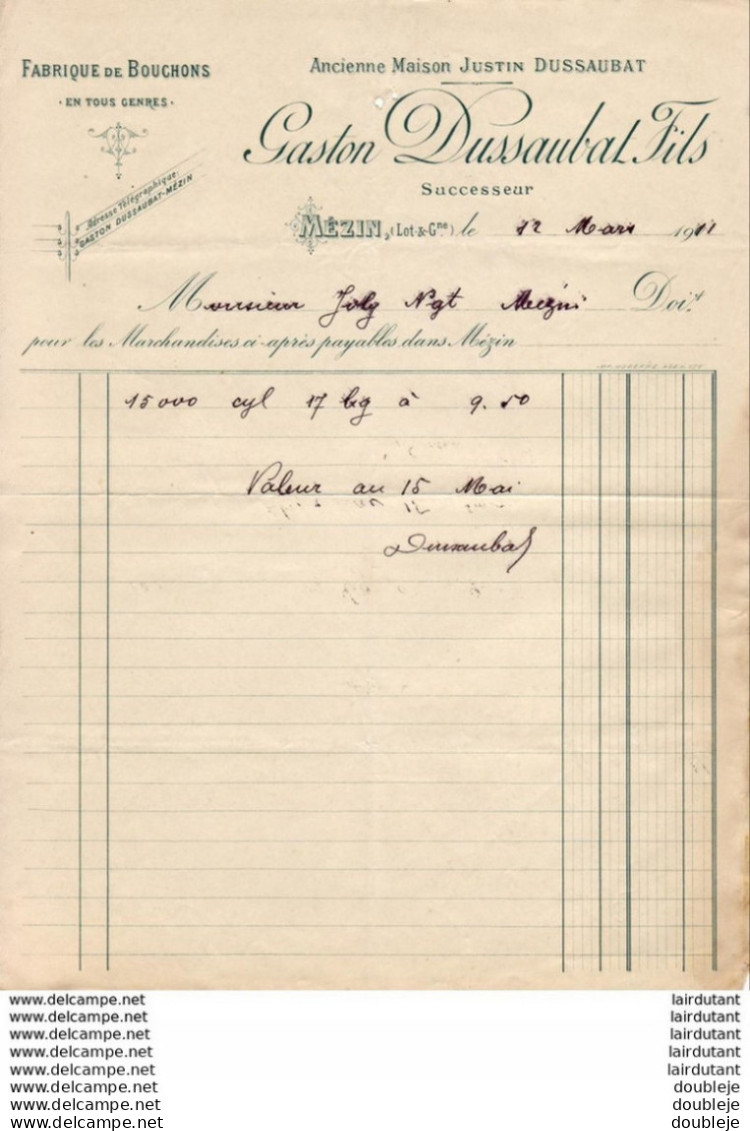 FABRIQUE DE BOUCHONS
EN TOUS GENRES
Adresse Télégraphique:
GASTON DUSSAUBAT-MÉZIN
Ancienne Maison JUSTIN DUSSAUBAT
Gaston Dussaubat Fils
Successeur
MÉZIN, (Lot-&-Gne) le 12 Mars 1911
Monsieur Joly Ngt Mézin Doit
pour les Marchandises ci-après payables dans Mézin
15000 cyl 17 lig à 9.50
Valeur au 15 Mai
Dussaubat
www.delcampe.net lairdutant
www.delcampe.net lairdutant
www.delcampe.net lairdutant
www.delcampe.net lairdutant
www.delcampe.net lairdutant
www.delcampe.net doubleje
www.delcampe.net doubleje
www.delcampe.net doubleje